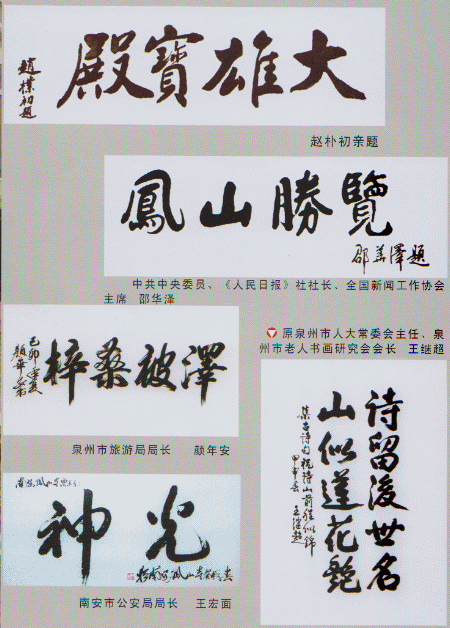 大雄寶殿
趙樸初題
赵朴初亲题
鳳山勝覽
邵華澤題
中共中央委员、《人民日报》社社长、全国新闻工作协会
主席 邵华泽
澤被桑梓
泉州市旅游局局长 颜年安
神光
南安市公安局局长 王宏面
原泉州市人大常委会主任、泉
州市老人书画研究会会长 王继超
诗留後世名
山似蓮花艷
集古诗句祝诗山前程似锦
甲申春 王继超